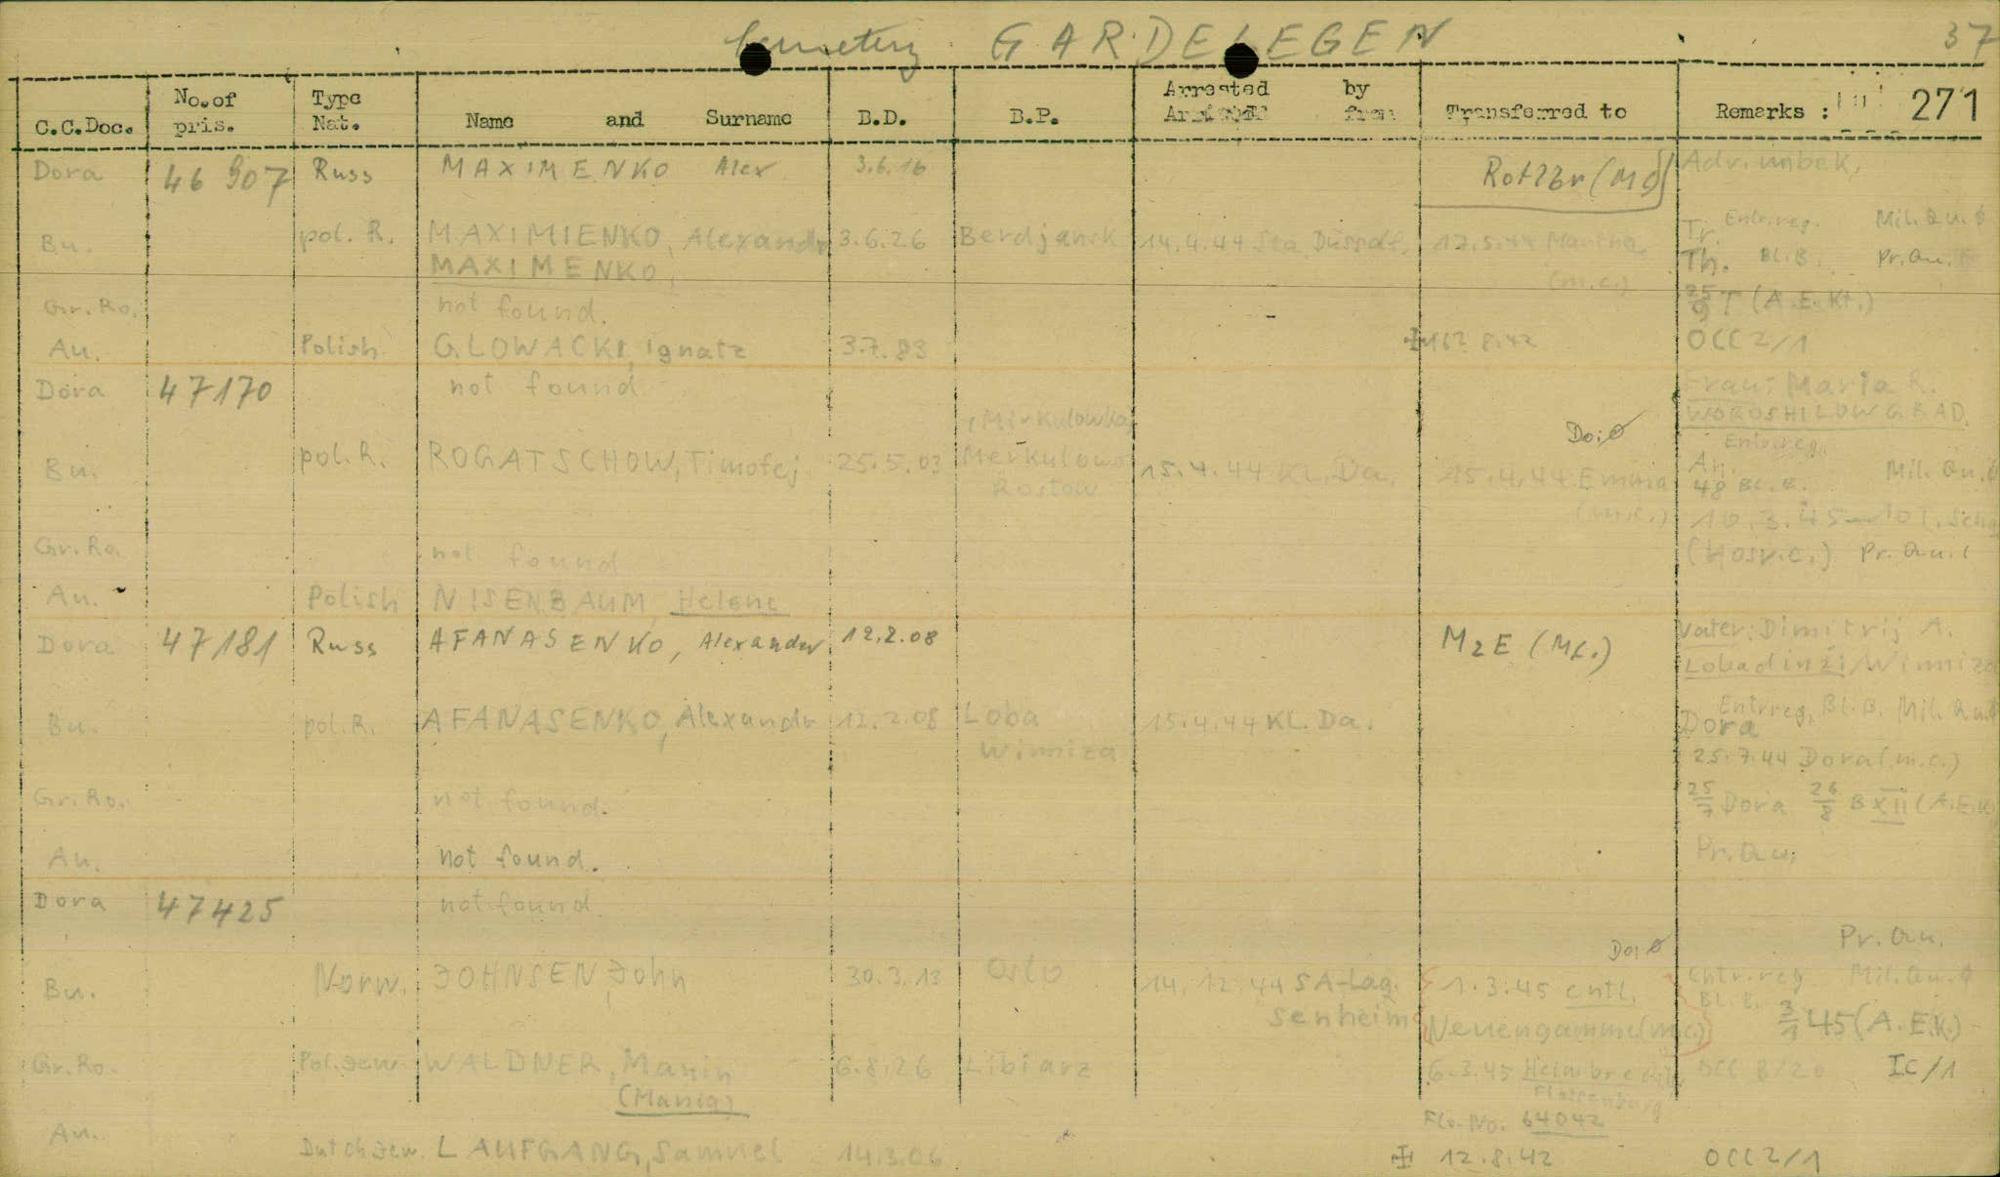 Cemetery GARDELEGEN 37
C.C.Doc. No. of pris. Type Nat. Name and Surname B.D. B.P. Arrested by Transferred to Remarks : 271
Dora 46 907 Russ MAXIMENKO Alex 3.6.16 Adr. unbek.
Bu. pol. R. MAXIMIENKO, Alexandr 3.6.26 Berdjansk 14.4.44 Sta. Düssdf. 17.5.44 Martha (m.c.) Tr. Entr.reg. Mil.Qu.Ø
MAXIMENKO, Th. Bl.B. Pr.Qu.
Gr.Ro. not found. T (A.E.Kt.)
Au. Polish GLOWACKI, Ignatz 3.7.83 8.42 OCC 2/1
Dora 47170 not found Frau: Maria R.
WOROSHILOWGRAD.
Bu. pol.R. ROGATSCHOW, Timofej 25.5.03 Merkulowo Rostow 15.4.44 KL. Da. Do:Ø 15.4.44 Emmia (m.c.) Entr.reg. An. 48 Bl.B. Mil.Qu.Ø
10.3.45
Gr.Ro. not found Pr.Qu.
Au. Polish NISENBAUM, Helene
Dora 47181 Russ AFANASENKO, Alexander 12.2.08 M2E (Mc.) Vater: Dimitrij A.
Bu. pol.R. AFANASENKO, Alexandr 12.2.08 Loba Winniza 15.4.44 KL. Da. Entr.reg. Bl.B. Mil.Qu.Ø
Dora
25.7.44 Dora (m.c.)
Gr.Ro. not found. 25/7 Dora 26/8 B XII (A.E.K.
Au. not found. Pr.Qu.
Dora 47425 not found.
Pr.Qu.
Bu. Norw. JOHNSEN, John 30.3.13 Oslo 14.12.44 SA-Lag. Senheim Do:Ø 1.3.45 entl. Neuengamme (m.c.) Entr.reg Mil.Qu.Ø
Bl.B. 45 (A.E.K.)
Gr.Ro. Pol.Jew WALDNER, Manin 6.8.26 Libiarz 6.3.45 OCC 8/20 IC/1
(Mania) Flossenburg
Flo.No. 64042
Au. Dutch Jew. LAUFGANG, Samuel 14.3.06 12.8.42 OCC 2/1